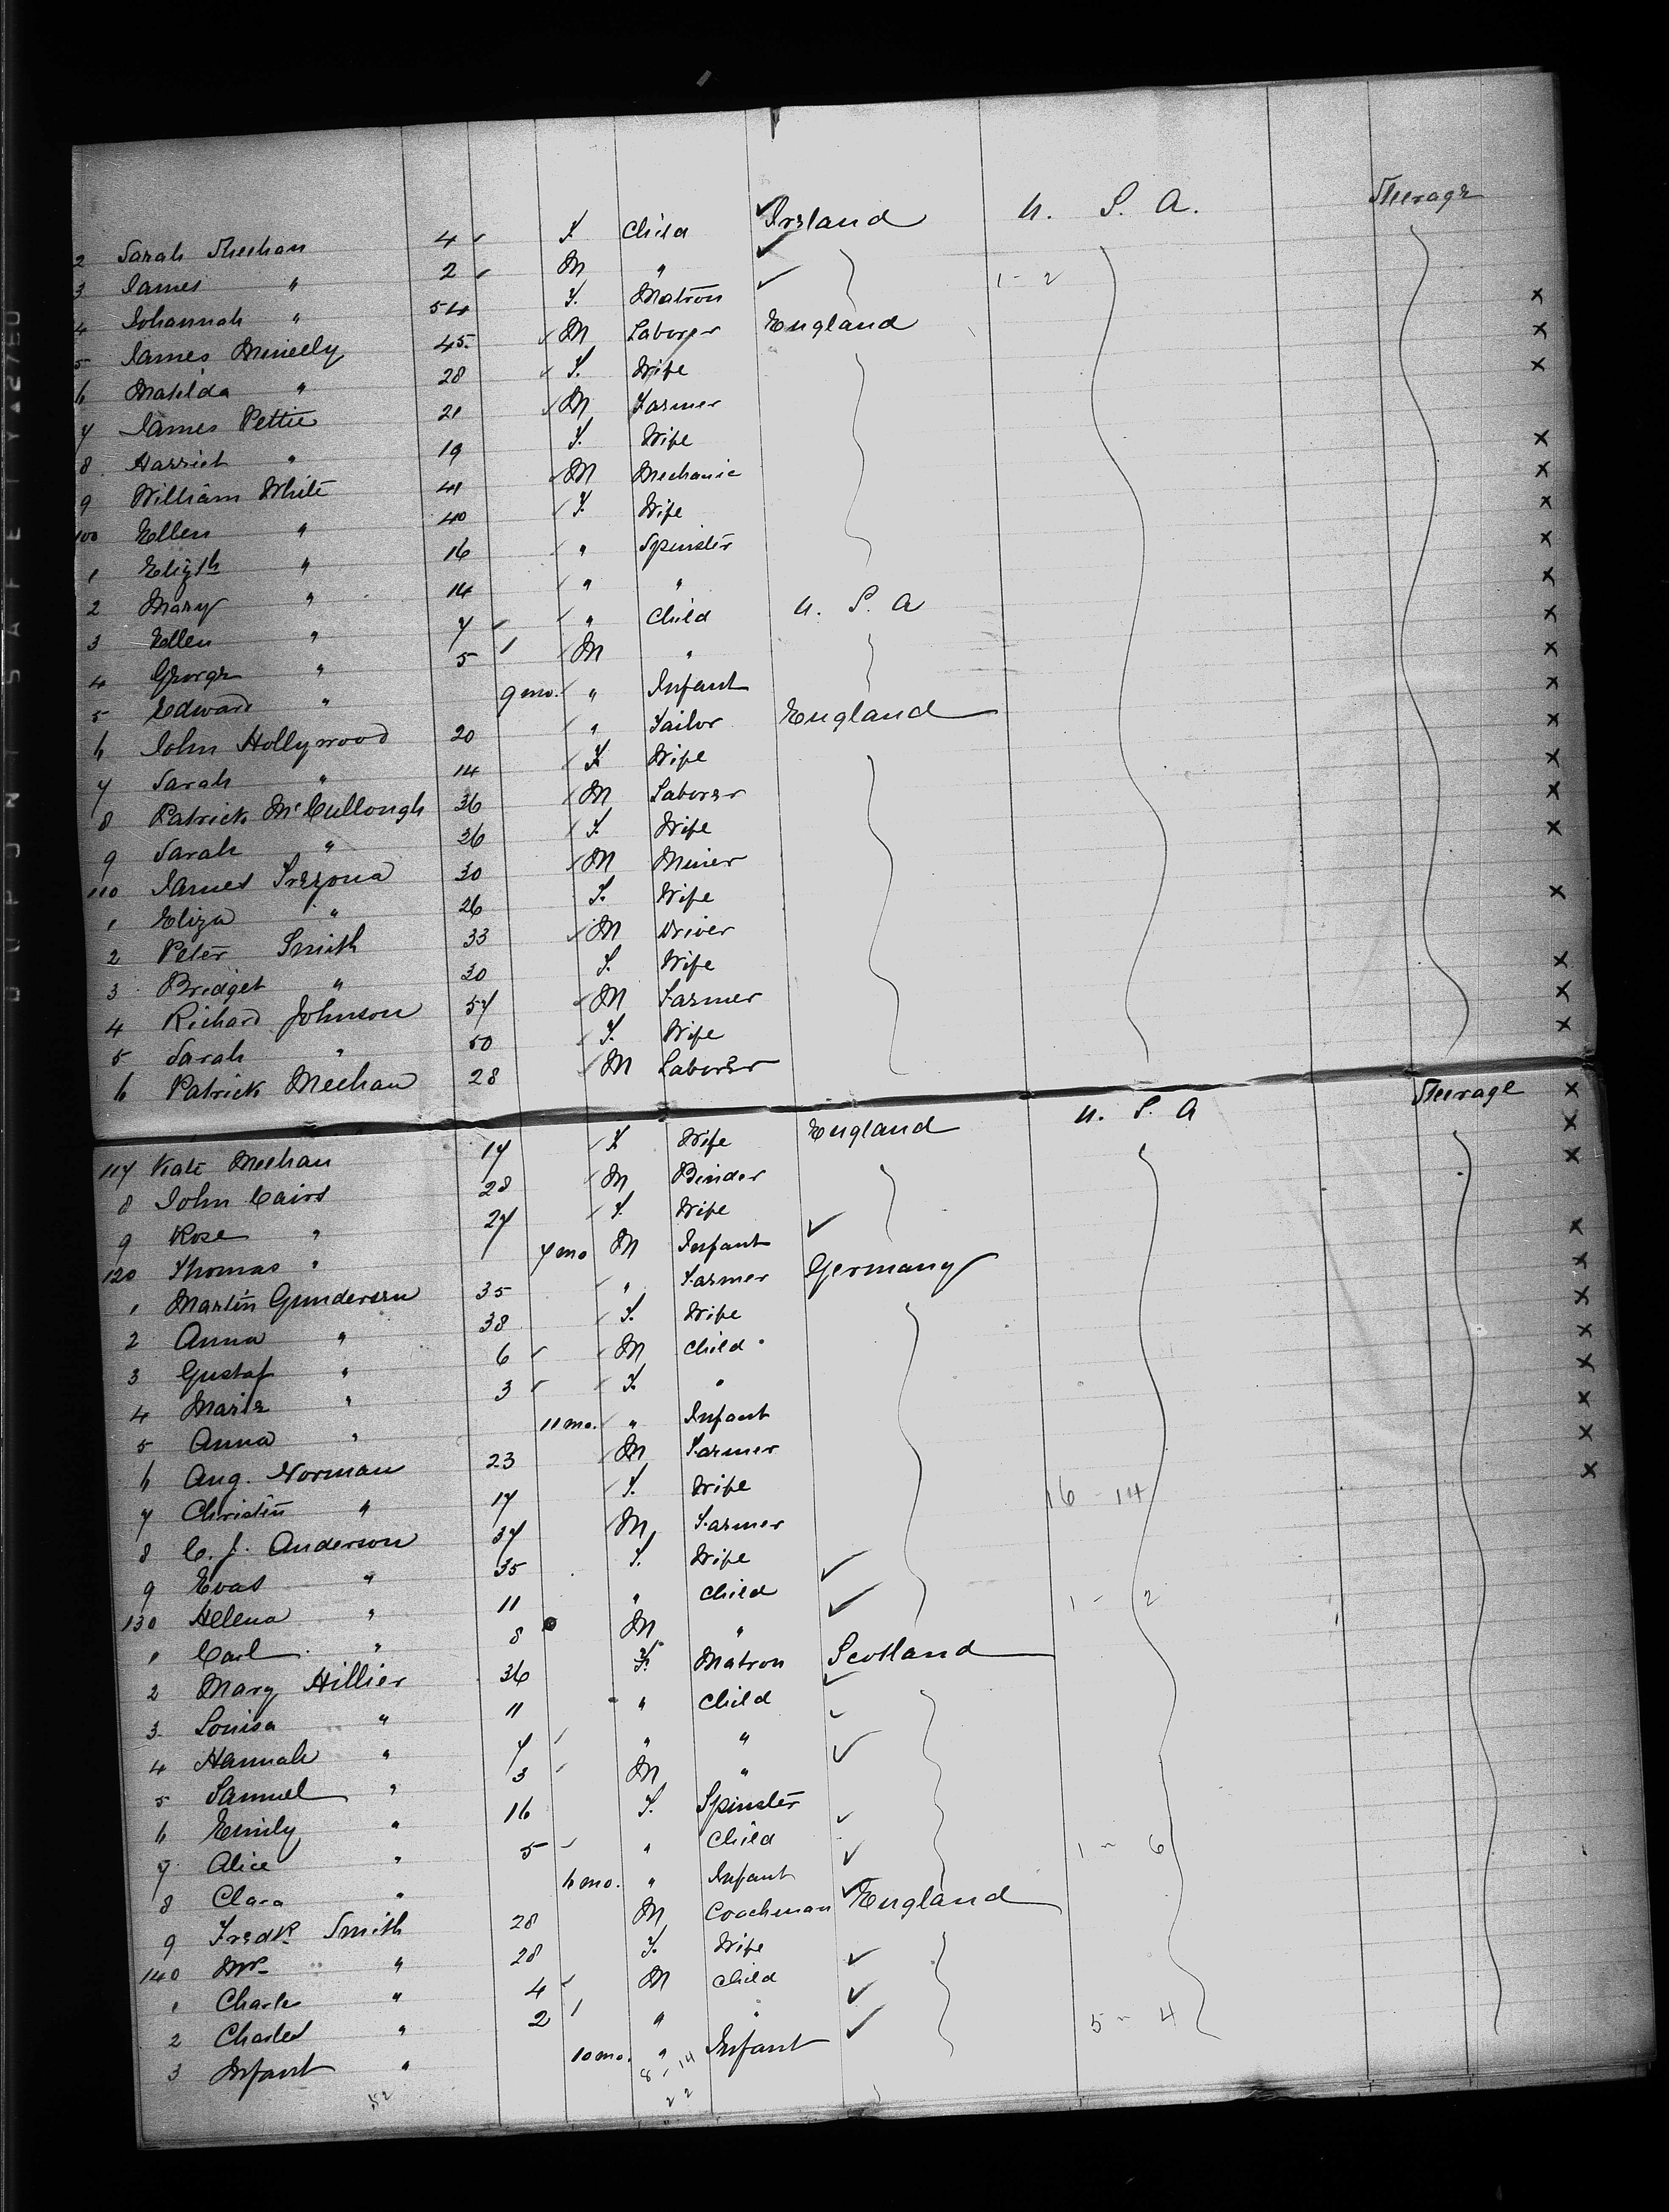 2 Sarah Sheehan 4 F. Child Ireland U. S. A. Steerage
3 James " 2 M "
4 Johannah " 54 F. Matron 1 - 2
5 James 45 M Laborer England
6 Matilda " 28 F. Wife
7 James Pettie 21 M Farmer
8 Harriet " 19 F. Wife
9 William White 41 M Mechanic
100 Ellen " 40 F. Wife
1 Elizth " 16 " Spinster
2 Mary " 14 " "
3 Ellen " 7 " Child U. S. A
4 George " 5 M "
5 Edward " 9 mo. " Infant
6 John Hollywood 20 " Tailor England
7 Sarah " 14 F. Wife
8 Patrick McCullough 36 M Laborer
9 Sarah " 26 F. Wife
110 James 30 M Miner
1 Eliza " 26 F. Wife
2 Peter Smith 33 M Driver
3 Bridget " 30 F. Wife
4 Richard Johnson 57 M Farmer
5 Sarah " 50 F. Wife
6 Patrick Meehan 28 M Laborer
117 Kate Meehan 17 F. Wife England U. S. A Steerage
8 John Caird 28 M Binder
9 Rose " 27 F. Wife
120 Thomas " 7 mo M Infant
1 Martin Gundersen 35 " Farmer Germany
2 Anna " 38 F. Wife
3 Gustaf " 6 M Child
4 Marie " 3 F. "
5 Anna " 11 mo. " Infant
6 Aug. Norman 23 M Farmer
7 Christin " 17 F. Wife 16 - 14
8 C. J. Anderson 37 M Farmer
9 Evas " 35 F. Wife
130 Helena " 11 " Child 1 - 2
1 Carl " 8 M "
2 Mary Hillier 36 F. Matron Scotland
3 Louisa " 11 " Child
4 Hannah " 7 " "
5 Samuel " 3 M "
6 Emily " 16 F. Spinster
7 Alice " 5 " Child 1 - 6
8 Clara " 6 mo. " Infant
9 Fredk Smith 28 M Coachman England
140 Mrs " 28 F. Wife
1 Charles " 4 M Child
2 Charles " 2 " " 5 - 4
3 Infant " 10 mo. " Infant
8 - 14
52 22